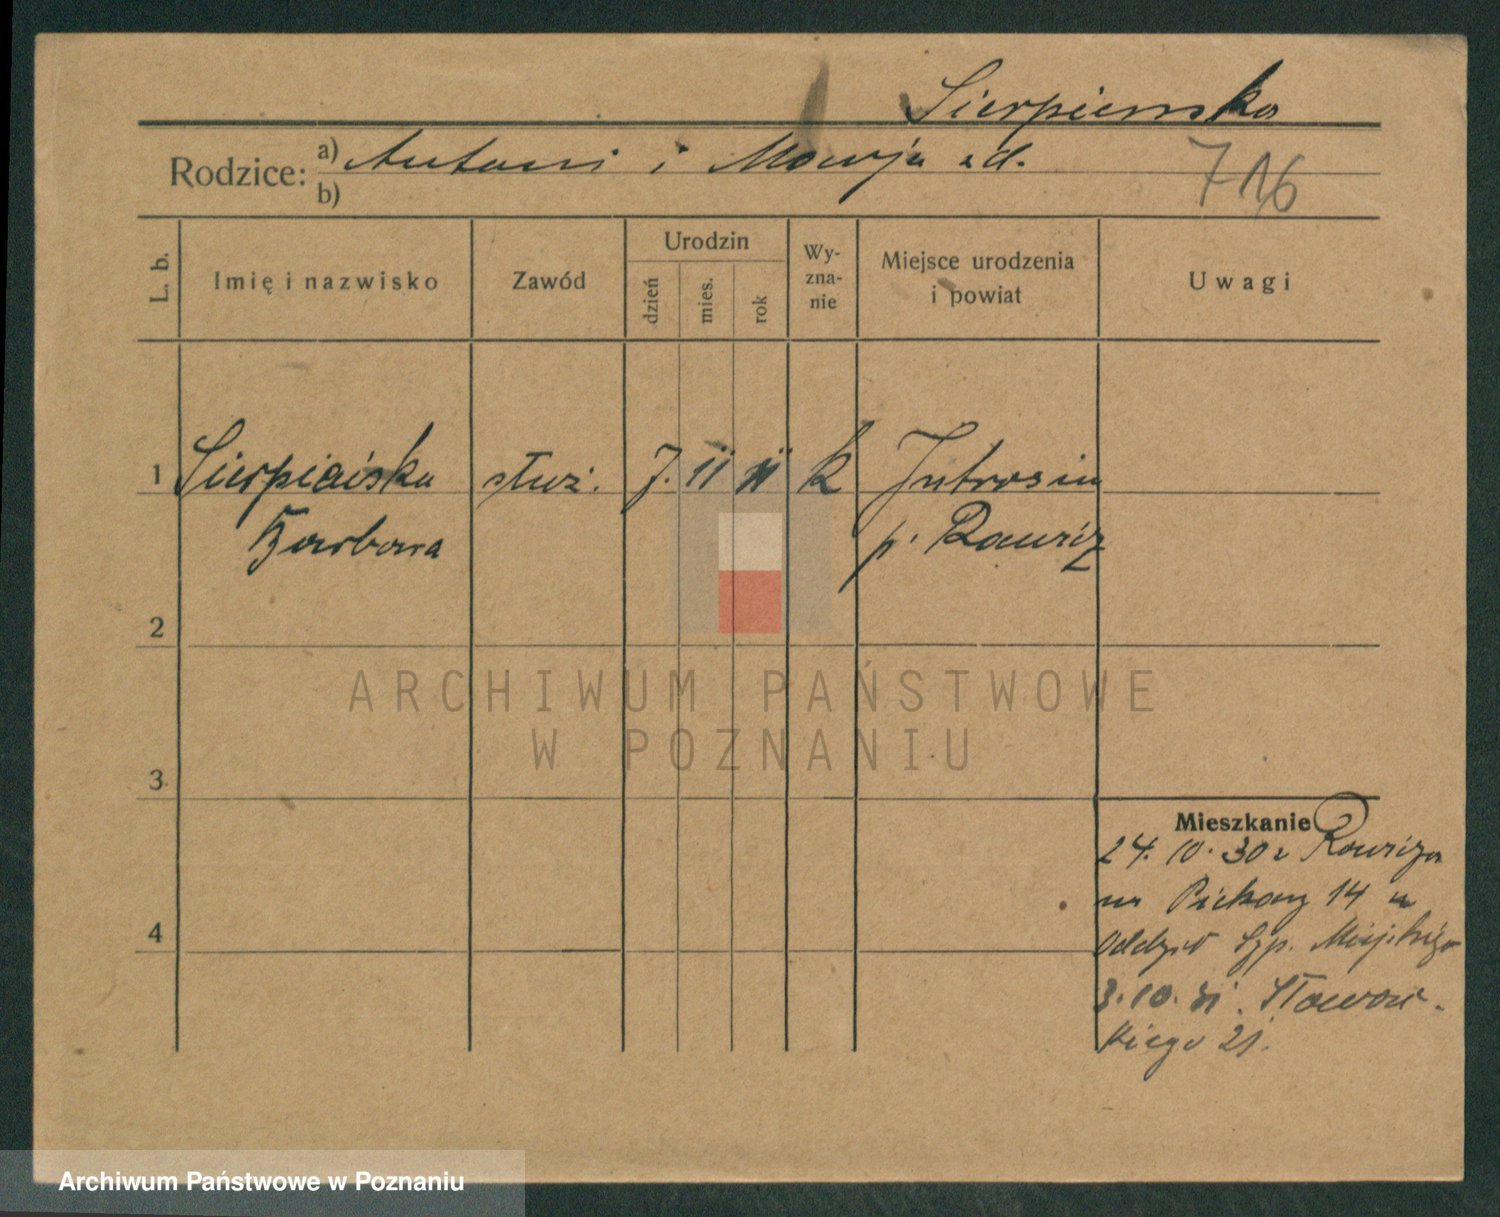 Sierpienska
Rodzice: a) Antoni i Marja
b)
716
L. b.
Imię i nazwisko
Zawód
Urodzin
dzień
mies.
rok
Wy-
zna-
nie
Miejsce urodzenia
i powiat
Uwagi
1 Sierpińska służ. 7. 11 11 k Jutrosin
Barbara p. Rawicz
2
3
4
Mieszkanie
24. 10. 30 z Rawicza
na Piekary 14
Szp. Miejskiego
3. 10. 31. Słowac-
kiego 21.
ARCHIWUM PAŃSTWOWE
W POZNANIU
Archiwum Państwowe w Poznaniu